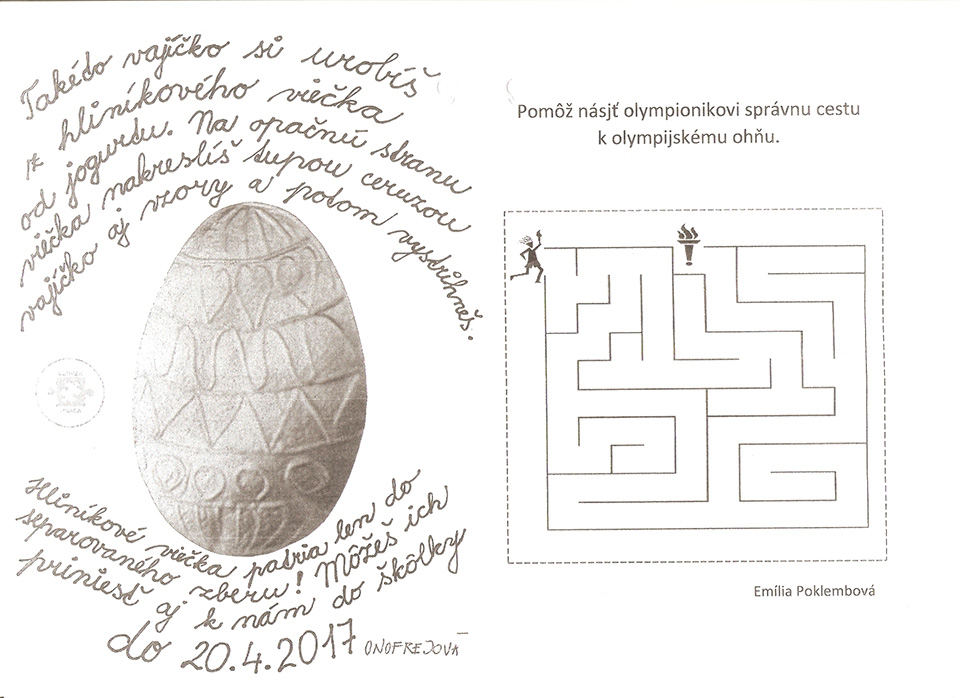 Takéto vajíčko si urobíš
z hliníkového viečka
od jogurtu. Na opačnú stranu
viečka nakreslíš tupou ceruzou
vajíčko aj vzory a potom vystrihneš.
Hliníkové viečka patria len do
separovaného zberu! Môžeš ich
priniesť aj k nám do škôlky
do 20.4.2017 ONOFREJOVÁ
Pomôž násjť olympionikovi správnu cestu
k olympijskému ohňu.
Emília Poklembová